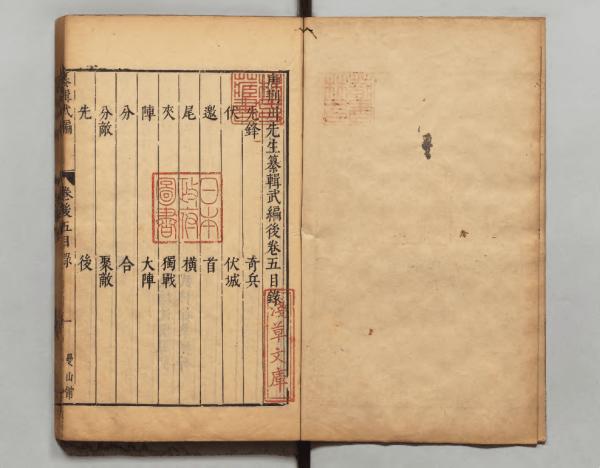 唐荊川先生纂輯武編後卷五目錄
先鋒 奇兵
伏 伏城
邀 首
尾 橫
夾 獨戰
陣 大陣
分 合
分敵 聚敵
先 後
纂輯武編 卷後五目錄 一 曼山館
日本
政府
圖書
淺草文庫